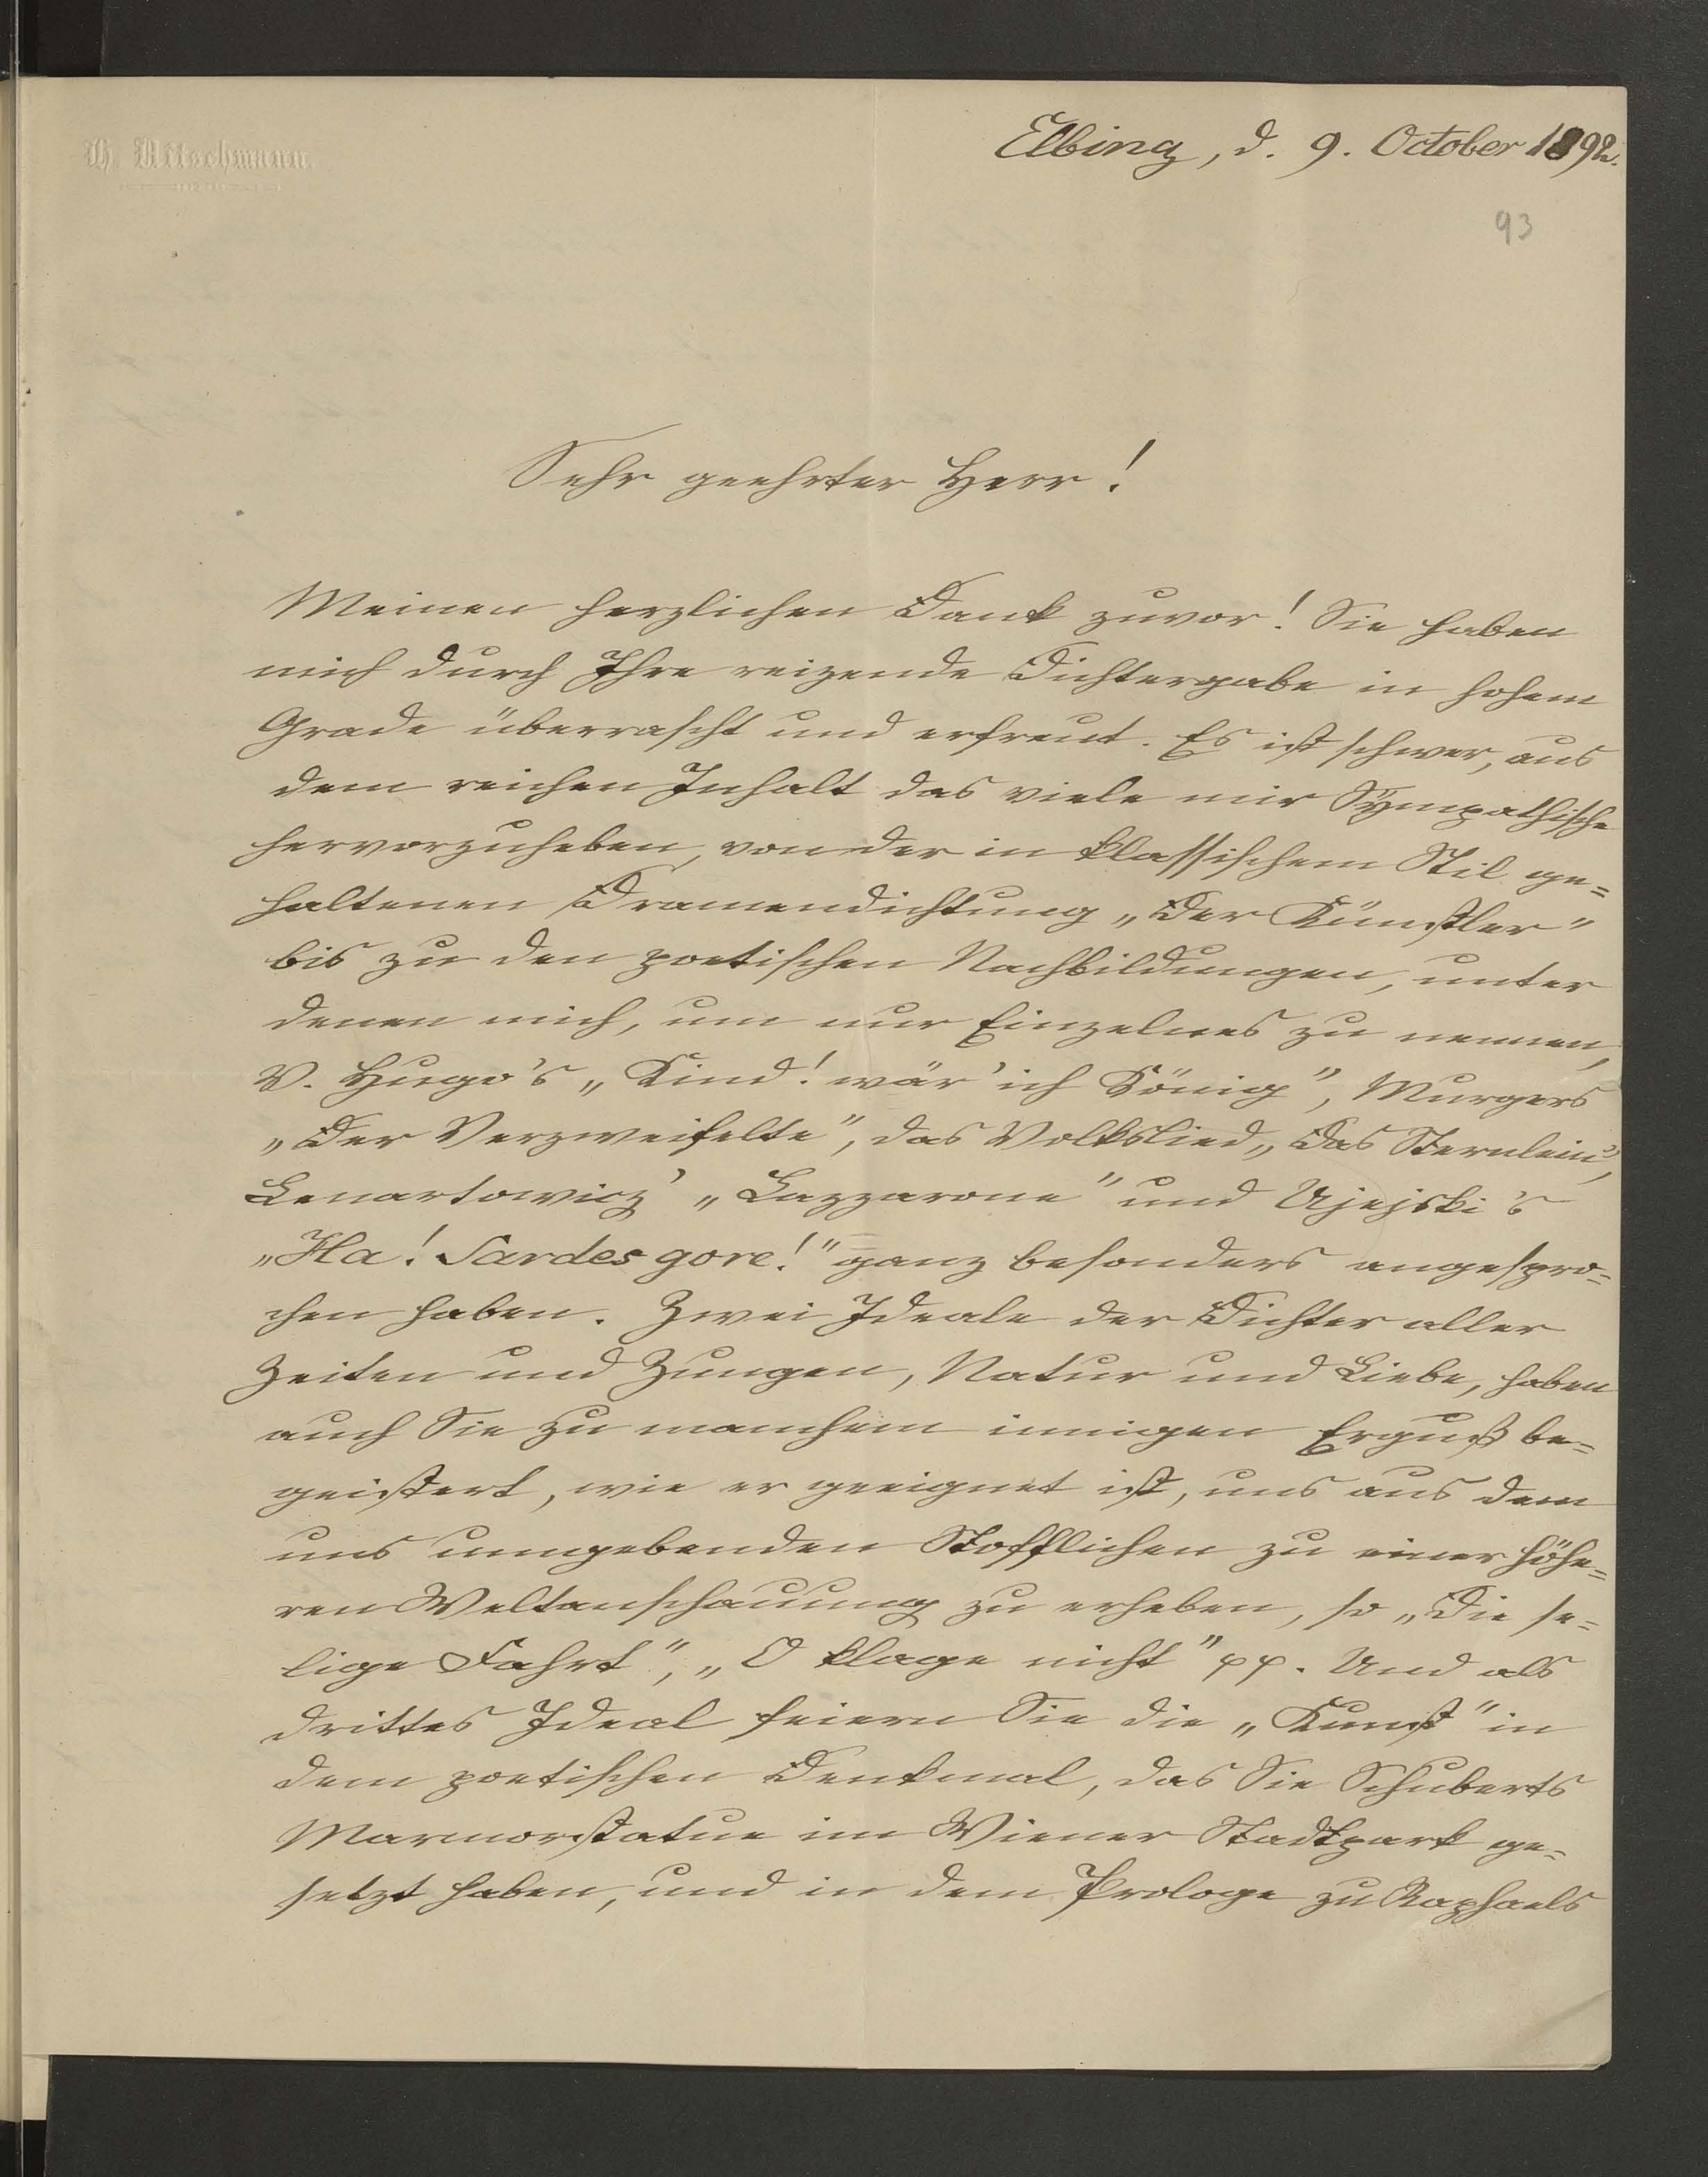 H. Nitschmann.
Elbing, d. 9. October 1892.
93
Sehr geehrter Herr!
Meinen herzlichen Dank zuvor! Sie haben
mich durch Ihre reizende Dichtergabe in hohem
Grade überrascht und erfreut. Es ist schwer, aus
dem reichen Inhalt das viele mir Sympathische
hervorzuheben, von der in klassischem Stil ge=
haltenen Dramendichtung „Der Künstler"
bis zu den poetischen Nachbildungen, unter
denen mich, um nur Einzelnes zu nennen,
V. Hugo's „Kind! wär' ich König", Murgers
„Der Verzweifelte", das Volkslied „Das Sternlein",
Lenartowicz' „Lazzarone" und Ujejski's
„Ha! Sardes gore!" ganz besonders angespro=
chen haben. Zwei Ideale der Dichter aller
Zeiten und Zungen, Natur und Liebe, haben
auch Sie zu manchem innigen Erguß be=
geistert, wie er geeignet ist, uns aus dem
uns umgebenden Stofflichen zu einer höhe=
ren Weltanschauung zu erheben, so „Die se=
lige Fahrt", „O klage nicht" pp. Und als
drittes Ideal feiern Sie die „Kunst" in
dem poetischen Denkmal, das Sie Schuberts
Marmorstatue im Wiener Stadtpark ge=
setzt haben, und in dem Prologe zu Raphaels